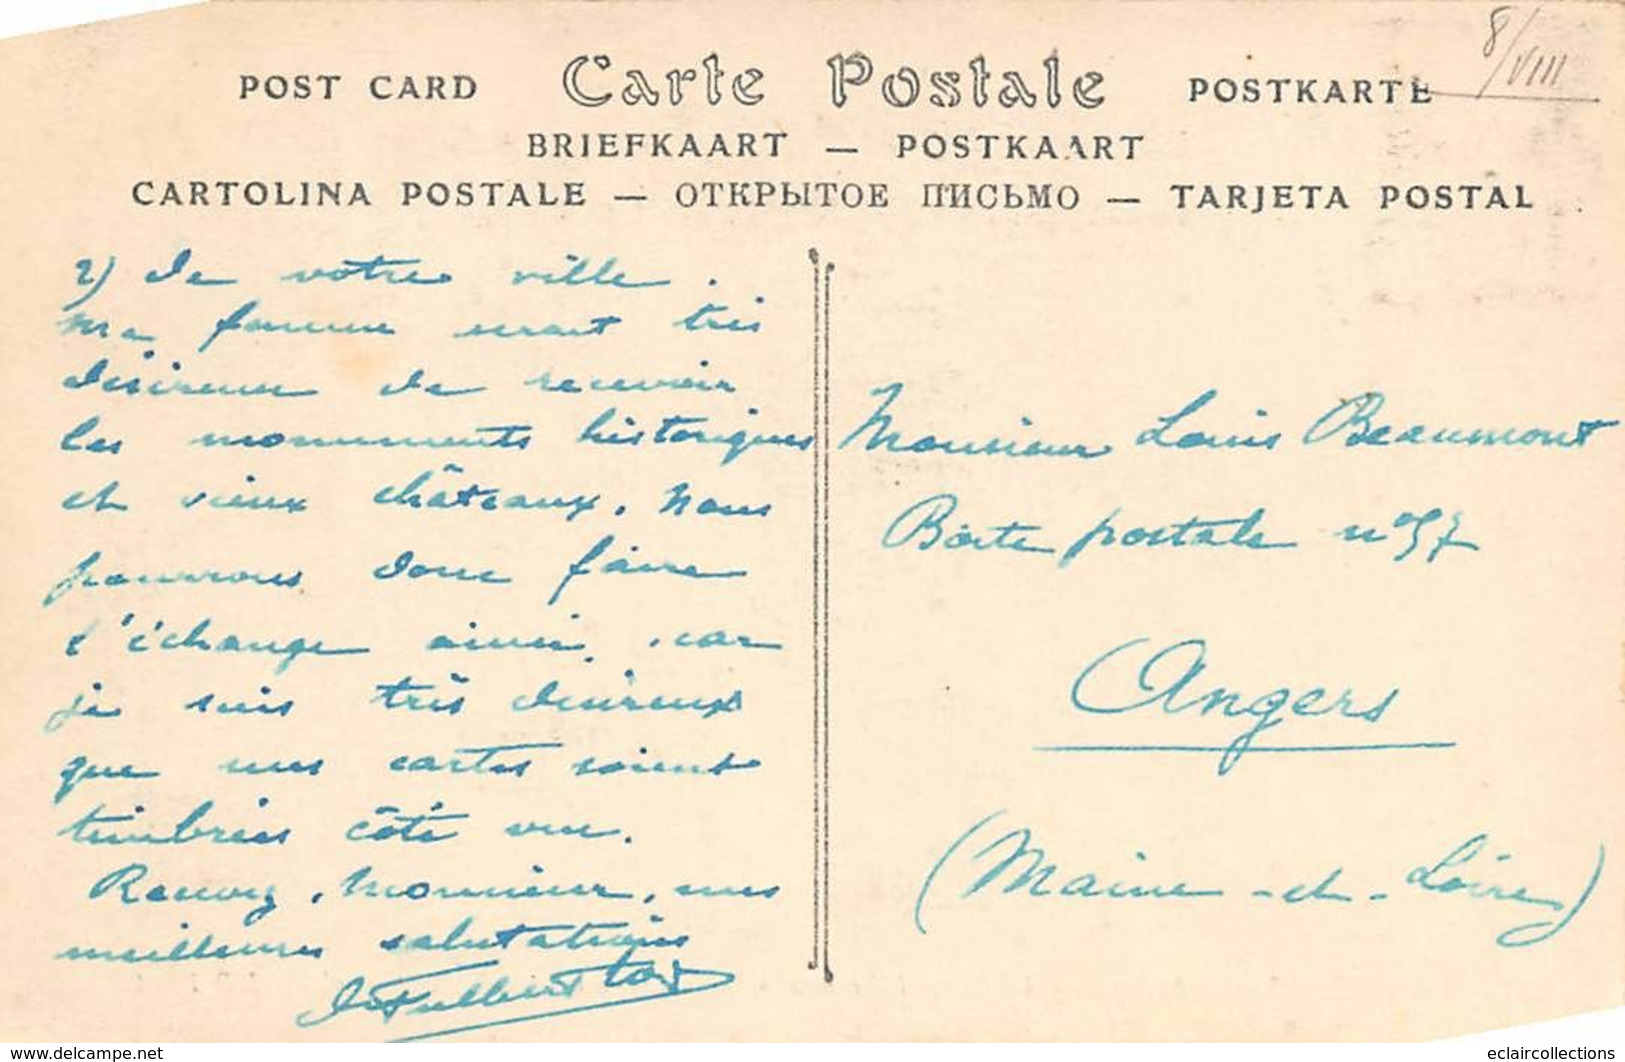 8/VIII
POST CARD Carte Postale POSTKARTE
BRIEFKAART — POSTKAART
CARTOLINA POSTALE — ОТКРЫТОЕ ПИСЬМО — TARJETA POSTAL
2) de votre ville.
Ma femme serait très
désireuse de recevoir
les monuments historiques
et vieux châteaux. Nous
pourrons donc faire
l'échange ainsi, car
je suis très désireux
que mes cartes soient
timbrées côté vue.
Recevez, Monsieur, mes
meilleures salutations
Monsieur Louis Beaumont
Boite postale n° 57
Angers
(Maine-et-Loire)
www.delcampe.net
eclaircollections